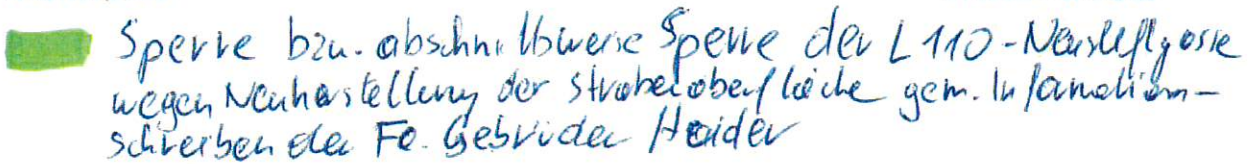 Sperre bzw. abschnittsweise Sperre der L110-Neustiftgasse
wegen Neuherstellung der Straßenoberfläche gem. Information-
schreiben der Fa. Gebrüder Haider